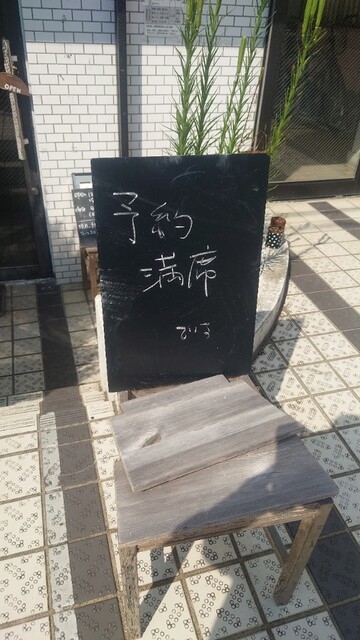 OPEN
予約
満席
です